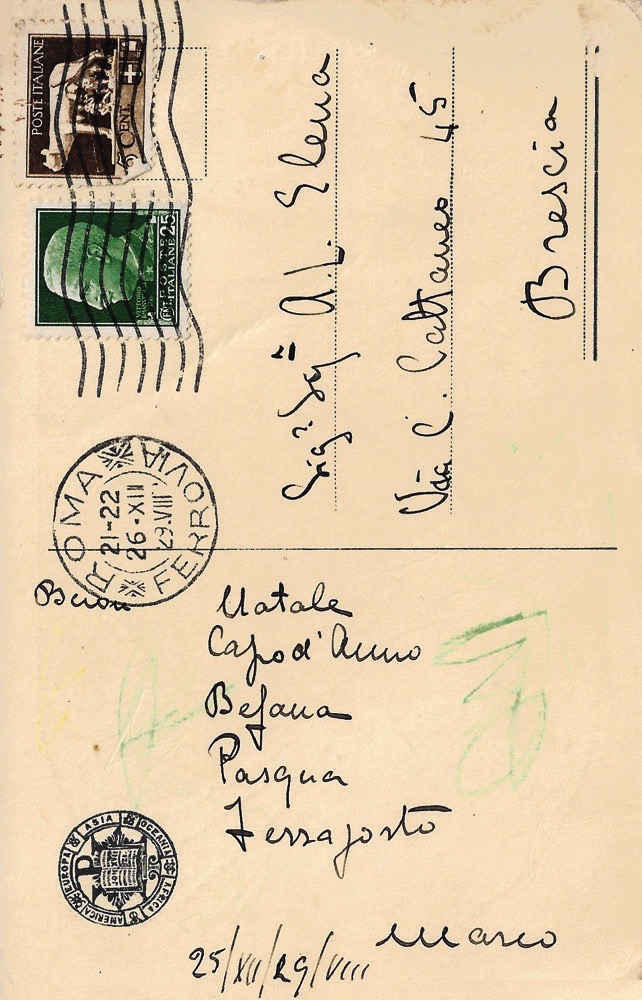 POSTE ITALIANE
5 CENT
POSTE
ITALIANE
CENT 25
ROMA FERROVIA
21-22
26·XII
29.VIII
Sig.ra Sig.na A.L. Elena
Via C. Cattaneo 45
Brescia
Buon
Natale
Capod'Anno
Befana
Pasqua
Ferragosto
Marco
25/XII/29/VIII
EUROPA ASIA OCEANIA AFRICA AMERICA